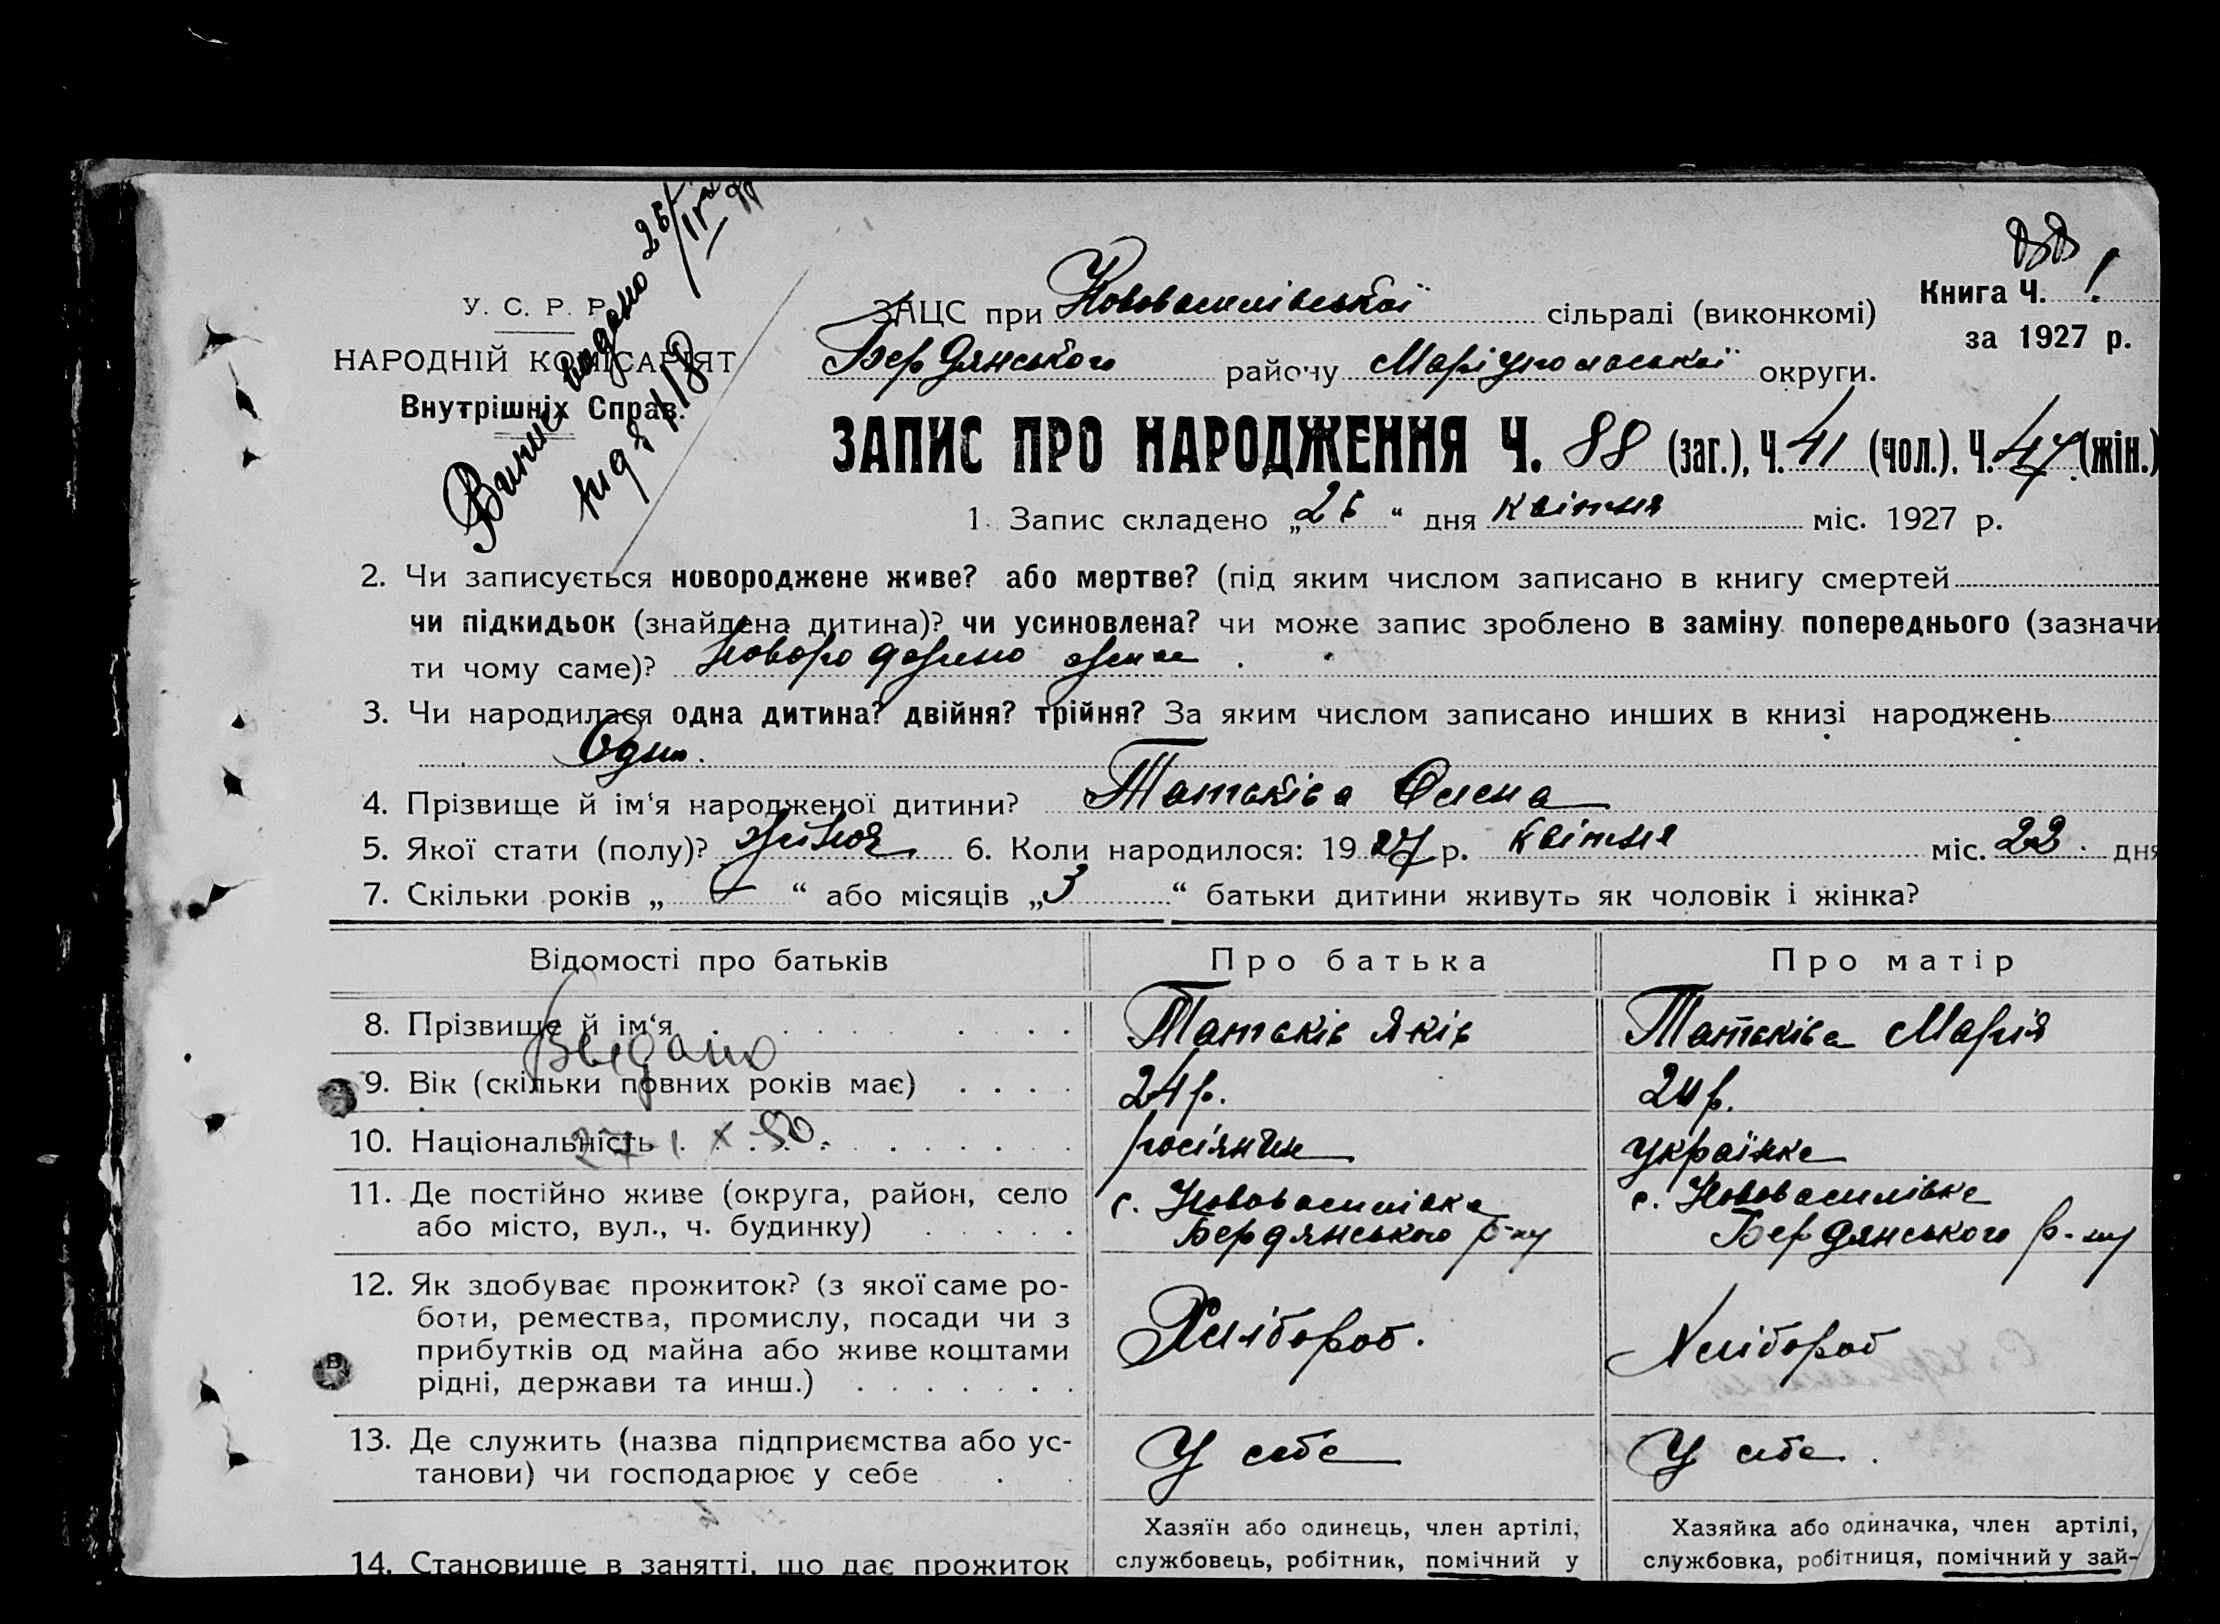 У. С. Р. Р.
НАРОДНІЙ КОМІСАРІЯТ
Внутрішніх Справ.
Виписі видано 26/
під № 118
ЗАЦС при Нововасилівської сільраді (виконкомі)
Книга Ч. 1
за 1927 р.
Бердянського району Маріупольської округи.
ЗАПИС ПРО НАРОДЖЕННЯ Ч. 88 (заг.), Ч. 41 (чол.), Ч. 47 (жін.)
1. Запис складено „26“ дня квітня міс. 1927 р.
2. Чи записується новороджене живе? або мертве? (під яким числом записано в книгу смертей
чи підкидьок (знайдена дитина)? чи усиновлена? чи може запис зроблено в заміну попереднього (зазначи
ти чому саме)? новороджено живе.
3. Чи народилася одна дитина? двійня? трійня? За яким числом записано инших в книзі народжень
Одна.
4. Прізвище й ім‘я народженої дитини? Татьківа Олена
5. Якої стати (полу)? жіноч. 6. Коли народилося: 1927 р. квітня міс. 22 дня
7. Скільки років „—“ або місяців „3“ батьки дитини живуть як чоловік і жінка?
Відомості про батьків Про батька Про матір
8. Прізвище й ім‘я Татьків Яків Татьківа Марія
Видано
9. Вік (скільки повних років має) 24 р. 24 р.
10. Національність росіянин українка
27-1X-50.
11. Де постійно живе (округа, район, село с. Нововасилівка с. Нововасилівка
або місто, вул., ч. будинку) Бердянського р-ну Бердянського р-ну
12. Як здобуває прожиток? (з якої саме ро-
боти, ремества, промислу, посади чи з Хлібороб. Хлібороб
прибутків од майна або живе коштами
рідні, держави та инш.)
13. Де служить (назва підприємства або ус- У себе У себе.
танови) чи господарює у себе
Хазяїн або одинець, член артілі, Хазяйка або одиначка, член артілі,
14. Становище в занятті, що дає прожиток службовець, робітник, помічний у службовка, робітниця, помічний у зай-